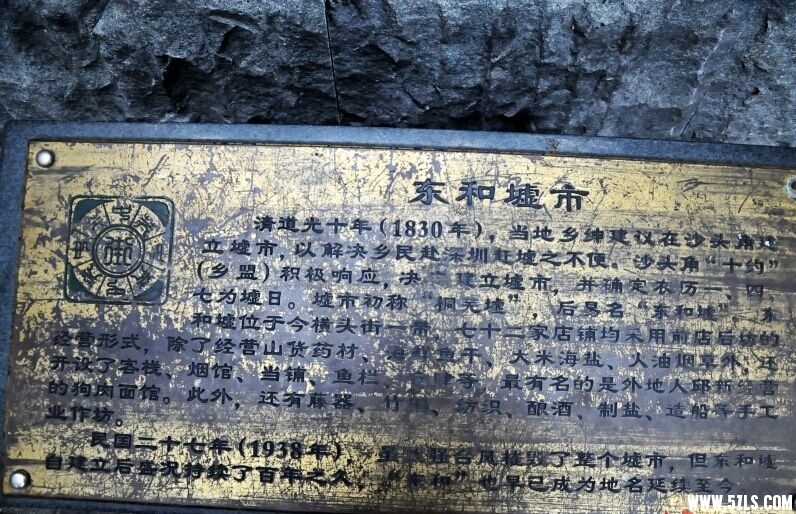 东和墟市
清道光十年（1830年），当地乡绅建议在沙头角建
立墟市，以解决乡民赴深圳赶墟之不便。沙头角“十约”
（乡盟）积极响应，决 建立墟市，并确定农历一、四、
七为墟日。墟市初称“桐芜墟”，后易名“东和墟”。东
和墟位于今横头街一带，七十二家店铺均采用前店后坊的
经营形式，除了经营山货药材、海 鱼干、大米海盐、火油烟草外，还
开设了客栈、烟馆、当铺、鱼栏、 等，最有名的是外地人邱新 营
的狗肉面馆。此外，还有藤器、竹 、纺织、酿酒、制盐、造船等手工
业作坊。
民国二十七年（1938年） 台风摧毁了整个墟市，但东和墟
自建立后盛况持续了百年之久，“东和”也早已成为地名延续至今
WWW.57LS.COM